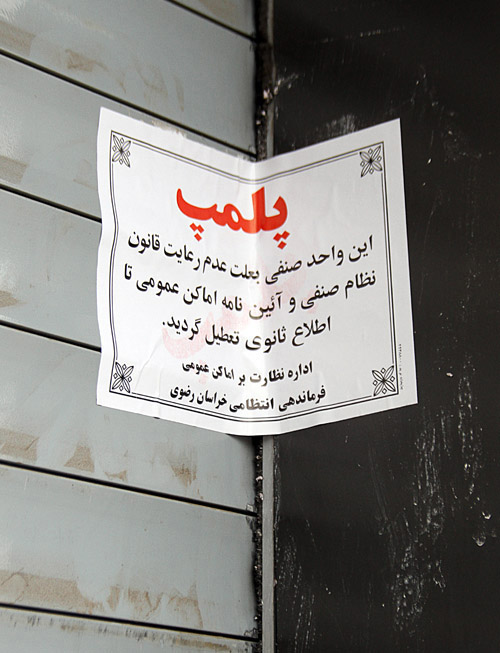 پلمپ
این واحد صنفی بعلت عدم رعایت قانون
نظام صنفی و آئین نامه اماکن عمومی تا
اطلاع ثانوی تعطیل گردید.
اداره نظارت بر اماکن عمومی
فرماندهی انتظامی خراسان رضوی